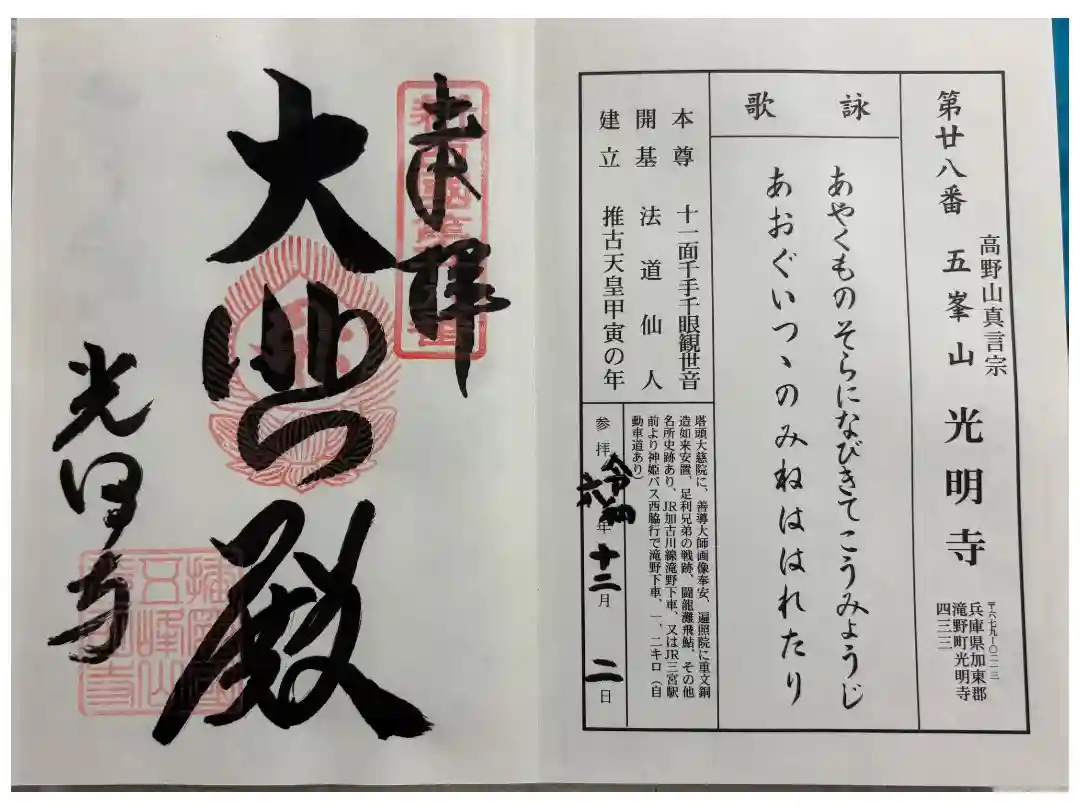 高野山真言宗
第廿八番 五峯山 光明寺
〒六七九-〇二一三
兵庫県加東郡
滝野町光明寺
四三三
詠歌
あやくものそらになびきてこうみょうじ
あおぐいつゝのみねははれたり
本尊 十一面千手千眼観世音
開基 法道仙人
建立 推古天皇甲寅の年
塔頭大慈院に、善導大師画像奉安、遍照院に重文銅
造如来安置、足利兄弟の戦跡、闘龍灘飛鮎、その他
名所史跡あり、JR加古川線滝野下車、又はJR三宮駅
前より神姫バス西脇行で滝野下車、一、二キロ（自
動車道あり）
参拝 令和六年 十二月 二日
奉拝
大悲殿
光明寺